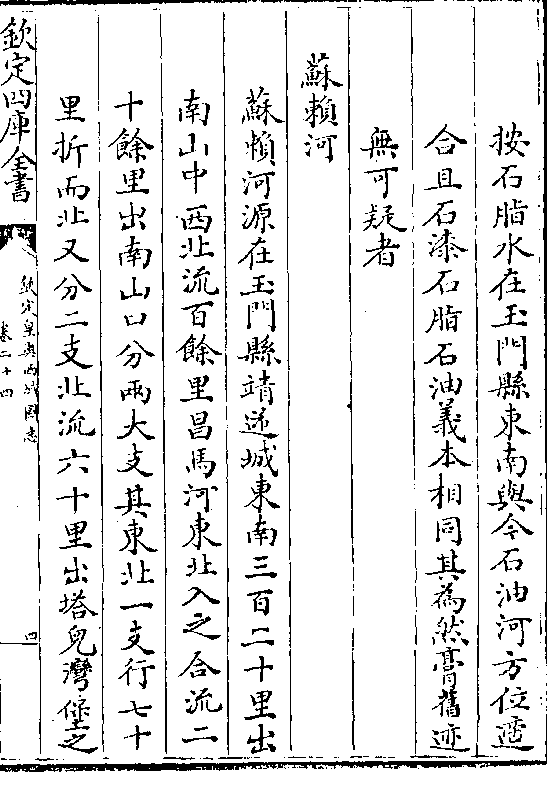 按石脂水在玉門縣東南與今石油河方位適
合且石漆石脂石油義本相同其為然膏舊迹
無可疑者
蘇賴河
蘇賴河源在玉門縣靖逆城東南三百二十里出
南山中西北流百餘里昌馬河東北入之合流二
十餘里出南山口分兩大支其東北一支行七十
里折而北又分二支北流六十里出塔兒灣堡之
欽定四庫全書
欽定皇輿西域圖志
卷二十四
四